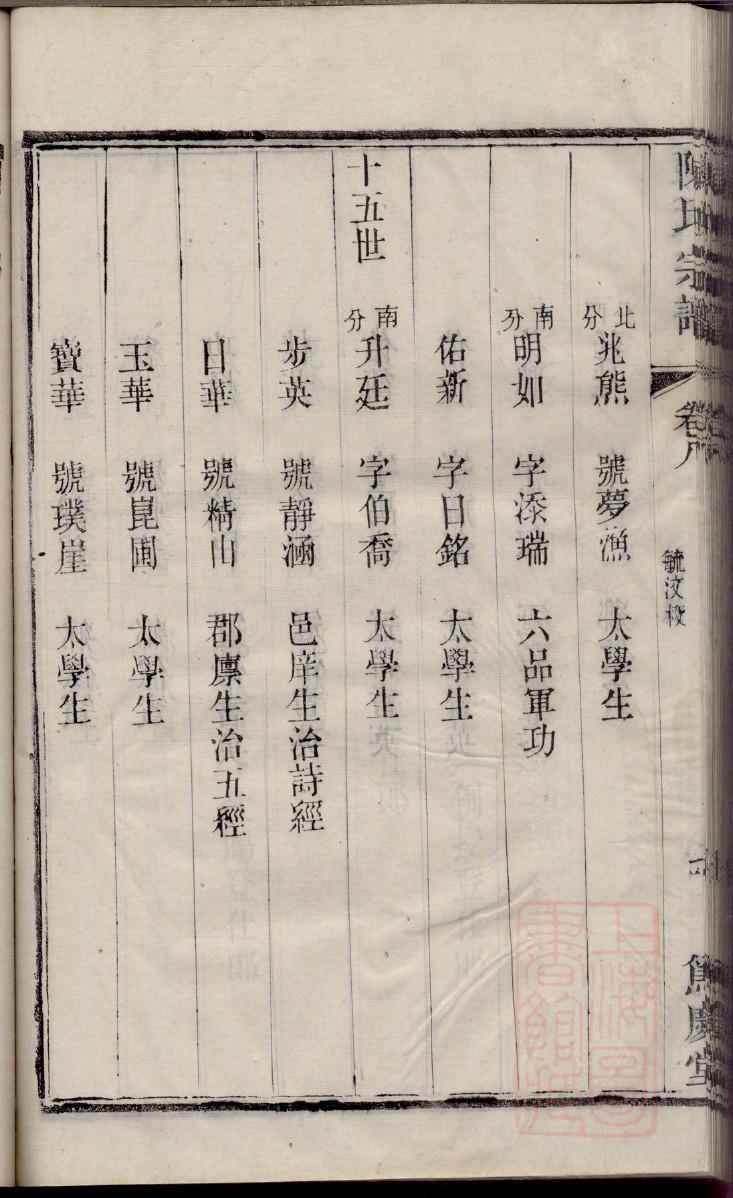 陳氏宗譜
毓汶校
篤慶堂
北分 兆熊 號夢漁 太學生
南分 明如 字添瑞 六品軍功
佑新 字日銘 太學生
十五世 南分 升廷 字伯喬 太學生
步英 號靜涵 邑庠生治詩經
日華 號精山 郡廪生治五經
玉華 號崑圃 太學生
寶華 號璞崖 太學生
上海圖書館藏